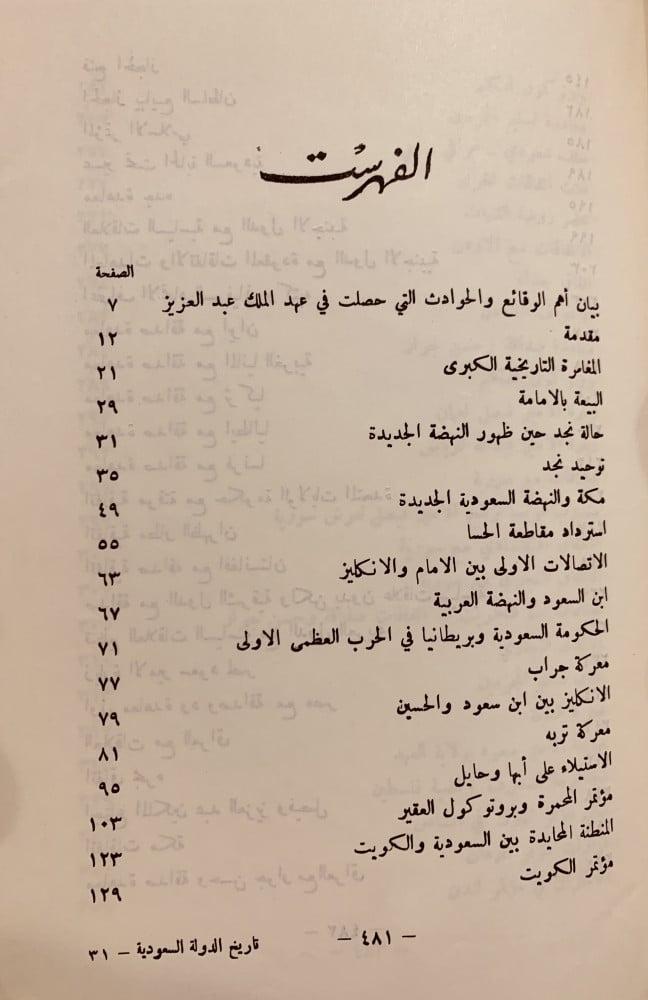 الفهرست
الصفحة
بيان أهم الوقائع والحوادث التي حصلت في عهد الملك عبد العزيز ٧
مقدمة ١٢
المغامرة التاريخية الكبرى ٢١
البيعة بالامامة ٢٩
حالة نجد حين ظهور النهضة الجديدة ٣١
توحيد نجد ٣٥
مكة والنهضة السعودية الجديدة ٤٩
استرداد مقاطعة الحسا ٥٥
الاتصالات الاولى بين الامام والانكليز ٦٣
ابن السعود والنهضة العربية ٦٧
الحكومة السعودية وبريطانيا في الحرب العظمى الاولى ٧١
معركة جراب ٧٧
الانكليز بين ابن سعود والحسين ٧٩
معركة تربه ٨١
الاستيلاء على أبها وحايل ٩٥
مؤتمر المحمرة وبروتوكول العقير ١٠٣
المنطنة المحايدة بين السعودية والكويت ١٢٣
مؤتمر الكويت ١٢٩
— ٤٨١ —
تاريخ الدولة السعودية — ٣١